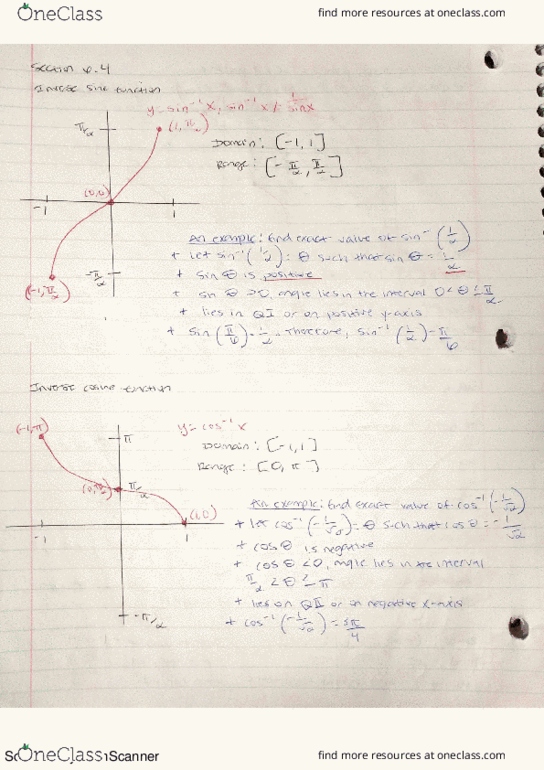 OneClass
find more resources at oneclass.com
Section 6.4
Inverse sine function
y=sin⁻¹x, sin⁻¹x ≠ 1/sinx
π/2
(1, π/2)
Domain: [-1, 1]
Range: [-π/2, π/2]
(0,0)
-1
1
An example: find exact value of sin⁻¹(1/2)
+ Let sin⁻¹(1/2)= θ such that sin θ = 1/2
-π/2
+ sin θ is positive
(-1, π/2)
+ sin θ >0, angle lies in the interval 0< θ ≤ π/2
+ lies in QI or on positive y-axis
+ sin(π/6)=1/2. Therefore, sin⁻¹(1/2)=π/6
Inverse cosine function
(-1, π)
π
y=cos⁻¹x
Domain: [-1, 1]
Range: [0, π]
(0, π/2)
π/2
(1,0)
-1
1
An example: find exact value of cos⁻¹(-1/√2)
+ let cos⁻¹(-1/√2)=θ such that cos θ = -1/√2
+ cos θ is negative
+ cos θ <0, angle lies in the interval
π/2 < θ ≤ π
+ lies on QII or on negative x-axis
+ cos⁻¹(-1/√2)=3π/4
-π/2
OneClass
Scanner
find more resources at oneclass.com